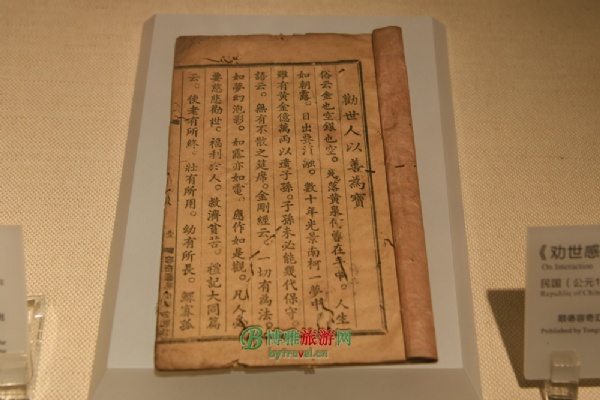 勸世人以善為寶
俗云金也空銀也空。死落黃泉代會在手中。人生
如朝露。日出要消融。數十年光景南柯一夢中
雖有黃金億萬兩以遺子孫。子孫未必能幾代保守。
語云。無有不散之筵席。金剛經云。一切有為法
如夢幻泡影。如露亦如電。應作如是觀。凡人
要慈悲勸世。福利於人。救濟貧苦。禮記大同篇
云。使老有所終。壯有所用。幼有所長。鰥寡孤
壹
博雅旅游网
byTravel.cn
《劝世感
On Interaction
民国（公元1
Republic of China
Published by Tong